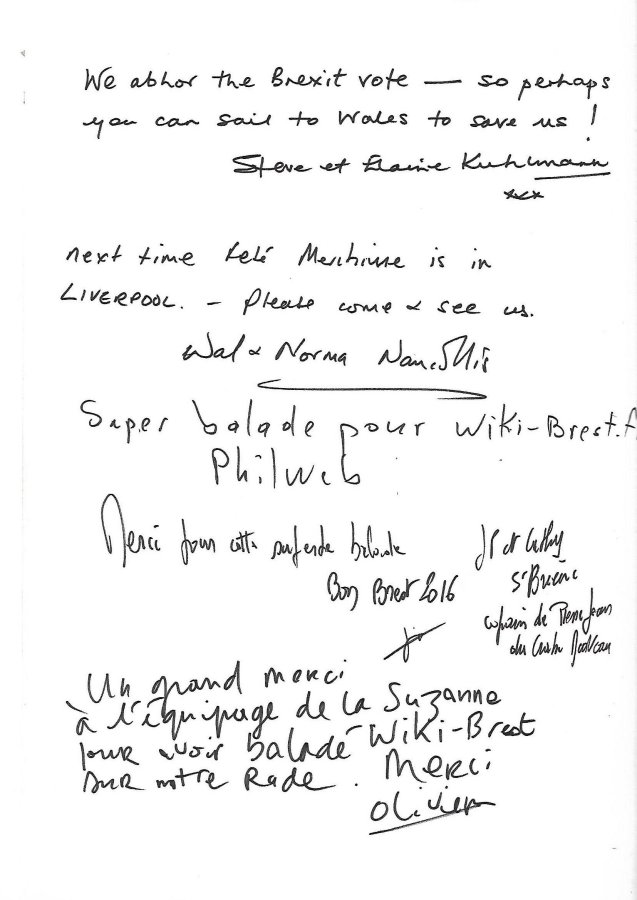 We abhor the Brexit vote — so perhaps
you can sail to Wales to save us !
Steve et Elaine Kuhlmann
xxx
next time is in
LIVERPOOL. - Please come & see us.
Wal & Norma
Super balade pour Wiki-Brest.f
PhilWeb
Merci pour cette superbe balade
Bon Brest 2016
JP et Cathy
St Brieuc
copain de Pierre Jean
du
Un grand merci
à l'équipage de la Suzanne
pour avoir baladé Wiki-Brest
sur notre Rade. Merci
Olivier